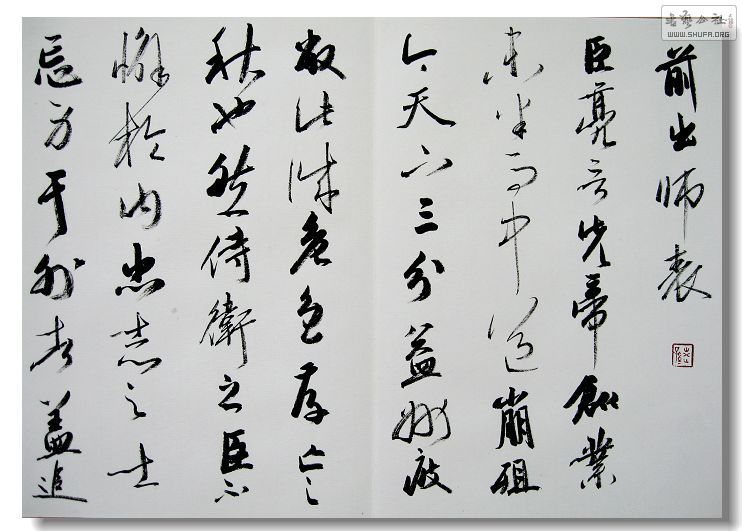 前出師表
臣亮言先帝創業
未半而中道崩殂
今天下三分益州疲
敝此誠危急存亡之
秋也然侍衛之臣不
懈於内忠志之士
忘身于外者蓋追
書藝公社
WWW.SHUFA.ORG